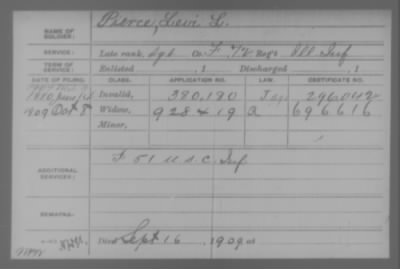 NAME OF SOLDIER: Pierce, Levi L.
SERVICE: Late rank, Sgt Co. F, 42 Reg't Ill Inf
TERM OF SERVICE: Enlisted , 1 Discharged , 1
DATE OF FILING. CLASS. APPLICATION NO. LAW. CERTIFICATE NO.
1880 June Invalid, 380,180 296042
1909 Oct 8 Widow, 928419 696616
Minor,
ADDITIONAL SERVICES: F 51 U.S.C. Inf
REMARKS:
Died Sept 16 1909